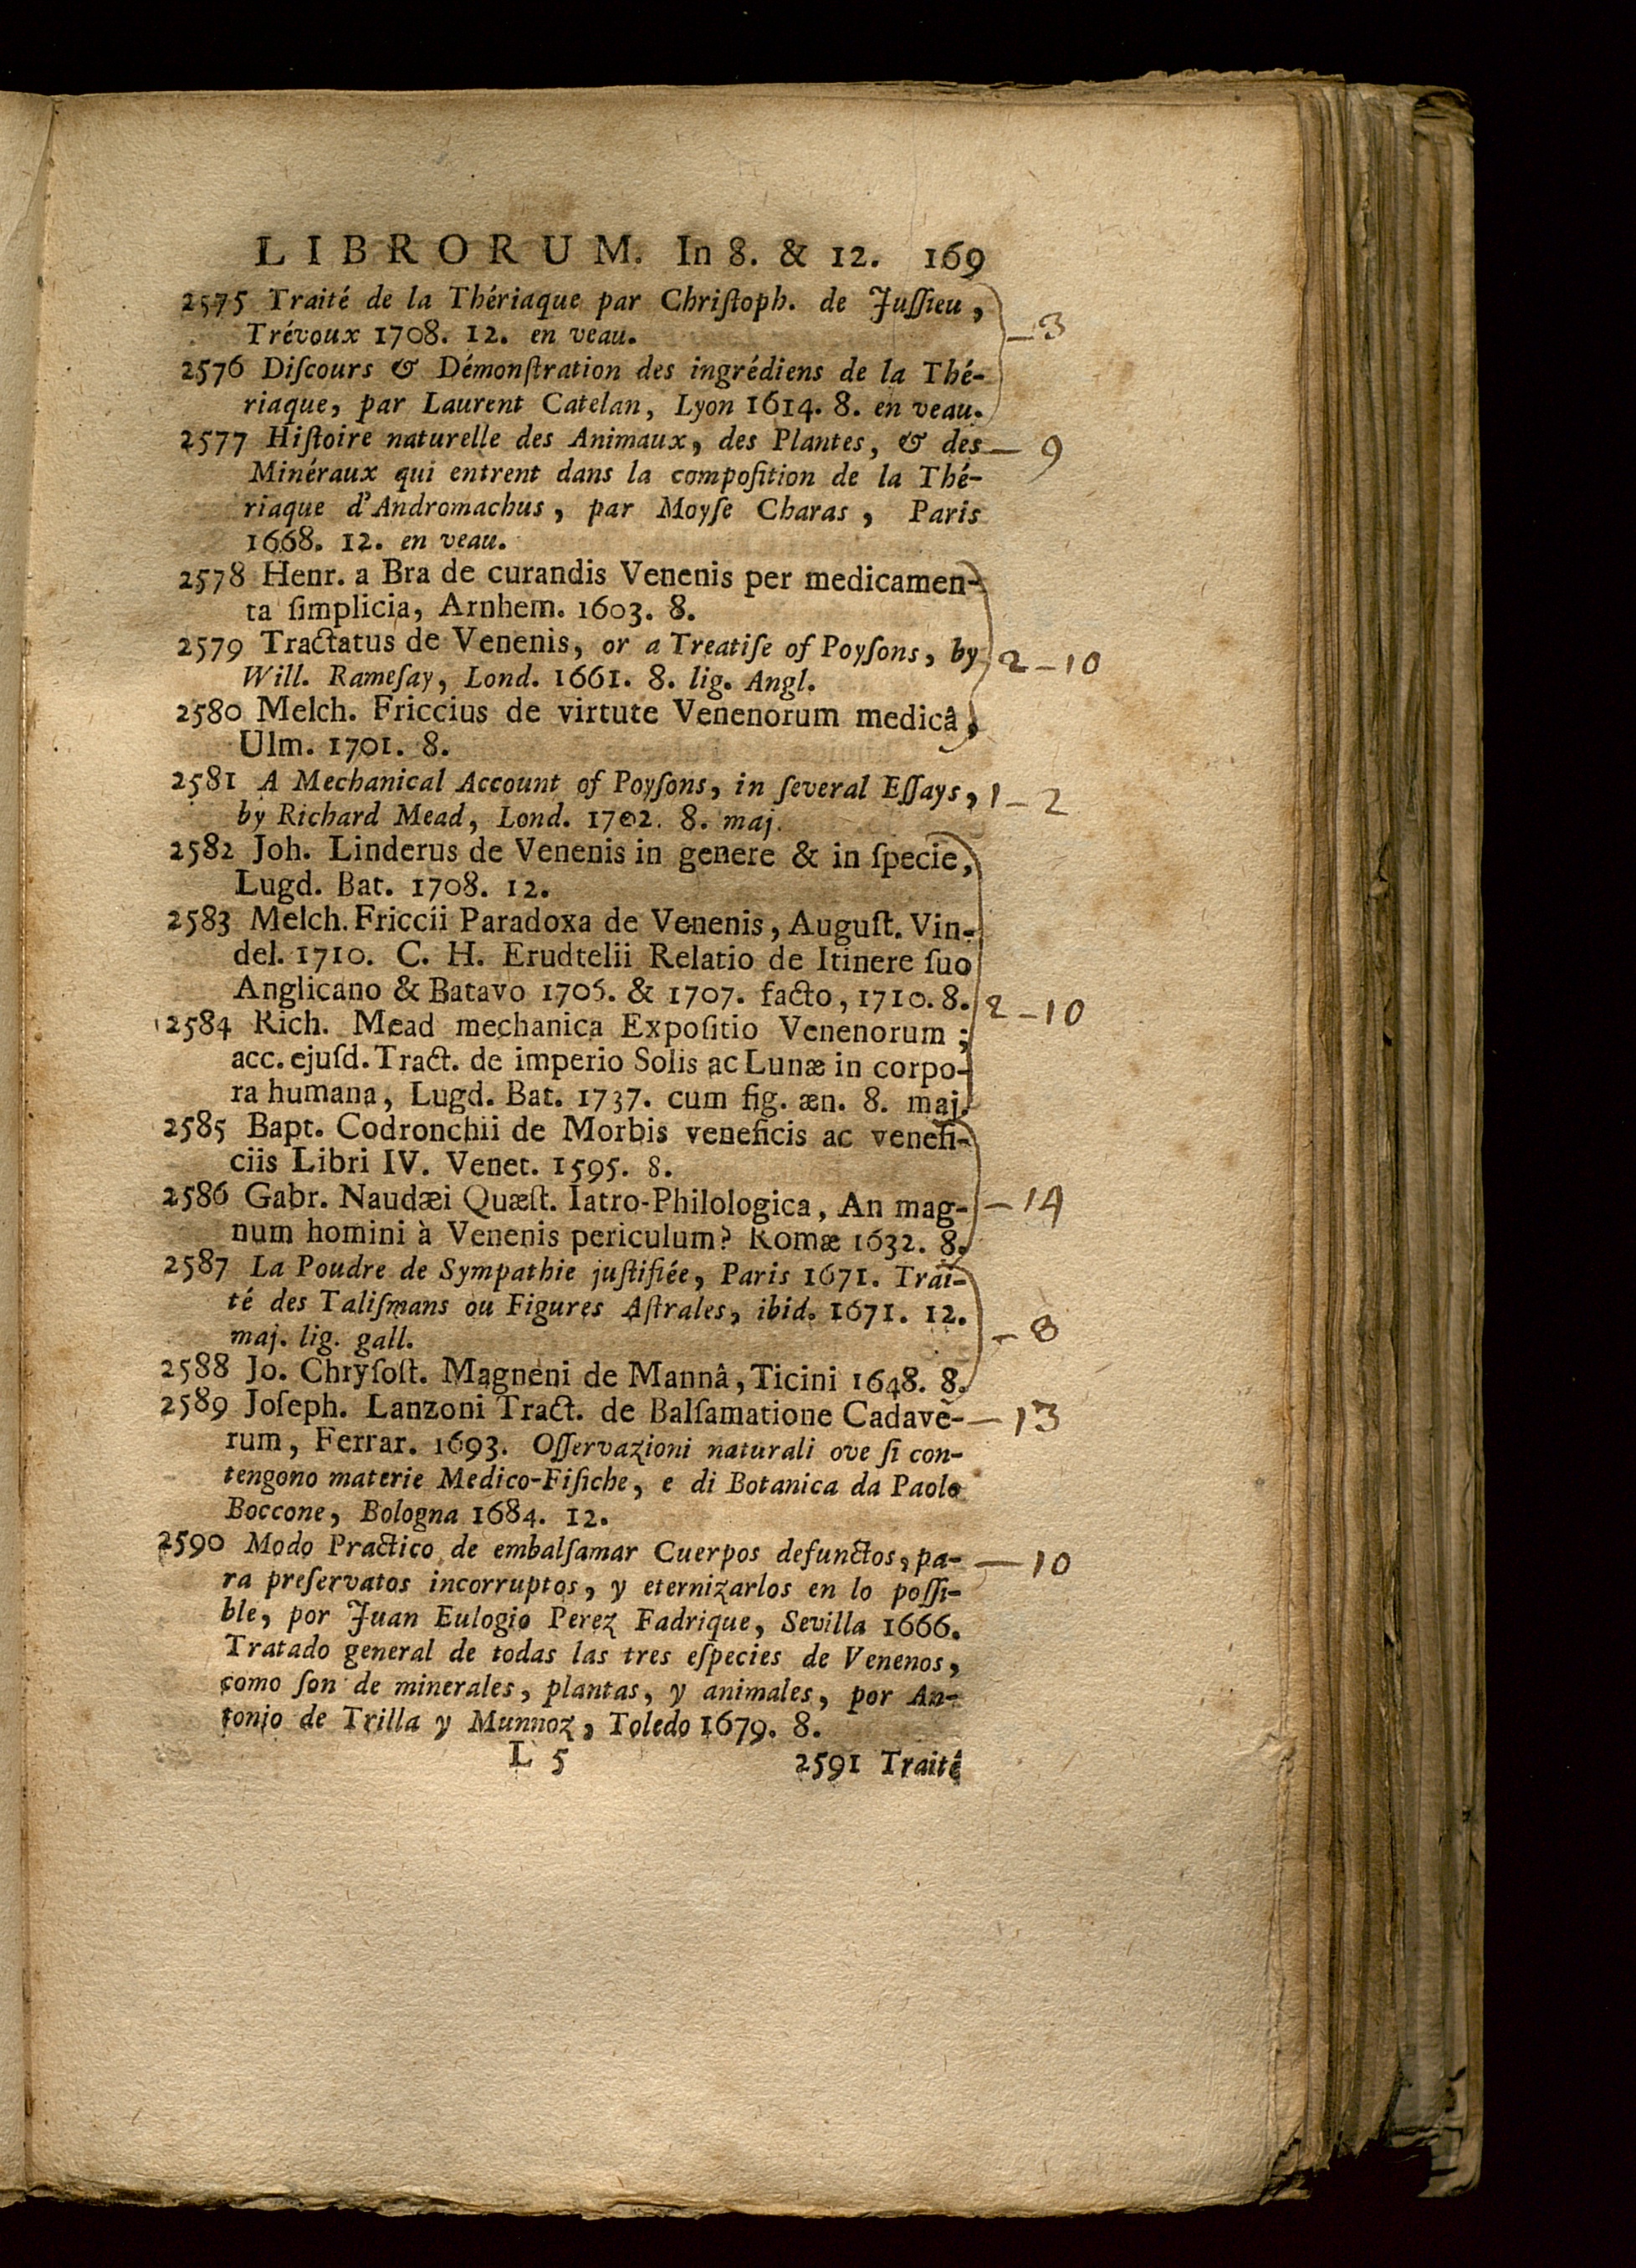 LIBRORUM. In 8. & 12. 169
2575 Traité de la Thériaque par Chriſtoph. de Juſſieu, – 3
Trévoux 1708. 12. en veau.
2576 Diſcours & Démonſtration des ingrédiens de la Thé-
riaque, par Laurent Catelan, Lyon 1614. 8. en veau.
2577 Hiſtoire naturelle des Animaux, des Plantes, & des — 9
Minéraux qui entrent dans la compoſition de la Thé-
riaque d'Andromachus, par Moyſe Charas, Paris
1668. 12. en veau.
2578 Henr. a Bra de curandis Venenis per medicamen-
ta ſimplicia, Arnhem. 1603. 8.
2579 Tractatus de Venenis, or a Treatiſe of Poyſons, by 2 – 10
Will. Rameſay, Lond. 1661. 8. lig. Angl.
2580 Melch. Friccius de virtute Venenorum medicâ,
Ulm. 1701. 8.
2581 A Mechanical Account of Poyſons, in ſeveral Eſſays, 1 – 2
by Richard Mead, Lond. 1702. 8. maj.
2582 Joh. Linderus de Venenis in genere & in ſpecie,
Lugd. Bat. 1708. 12.
2583 Melch. Friccii Paradoxa de Venenis, Auguſt. Vin-
del. 1710. C. H. Erudtelii Relatio de Itinere ſuo
Anglicano & Batavo 1706. & 1707. facto, 1710. 8. 2 – 10
2584 Rich. Mead mechanica Expoſitio Venenorum;
acc. ejuſd. Tract. de imperio Solis ac Lunæ in corpo-
ra humana, Lugd. Bat. 1737. cum fig. æn. 8. maj.
2585 Bapt. Codronchii de Morbis veneficis ac venefi-
ciis Libri IV. Venet. 1595. 8.
2586 Gabr. Naudæi Quæſt. Iatro-Philologica, An mag- – 14
num homini à Venenis periculum? Romæ 1632. 8.
2587 La Poudre de Sympathie juſtifiée, Paris 1671. Trai-
té des Taliſmans ou Figures Aſtrales, ibid. 1671. 12.
maj. lig. gall. – 8
2588 Jo. Chryſoſt. Magneni de Mannâ, Ticini 1648. 8.
2589 Joſeph. Lanzoni Tract. de Balſamatione Cadave- — 13
rum, Ferrar. 1693. Oſſervazioni naturali ove ſi con-
tengono materie Medico-Fiſiche, e di Botanica da Paolo
Boccone, Bologna 1684. 12.
2590 Modo Practico de embalſamar Cuerpos defunctos, pa- — 10
ra preſervatos incorruptos, y eternizarlos en lo poſſi-
ble, por Juan Eulogio Perez Fadrique, Sevilla 1666.
Tratado general de todas las tres eſpecies de Venenos,
como ſon de minerales, plantas, y animales, por An-
tonio de Trilla y Munnoz, Toledo 1679. 8.
L 5 2591 Traité